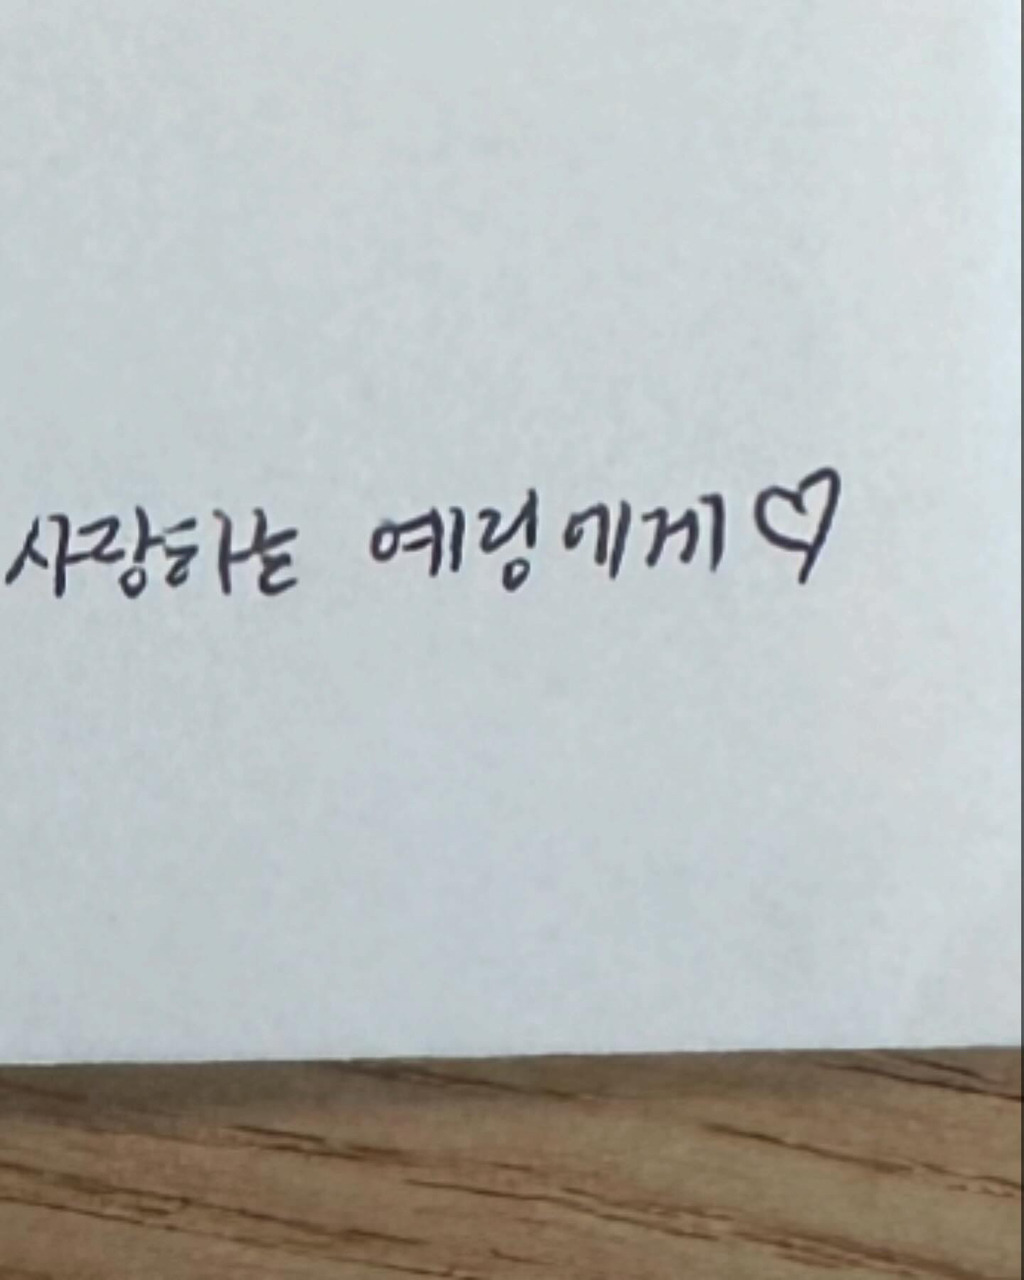 사랑하는 예링에게♡